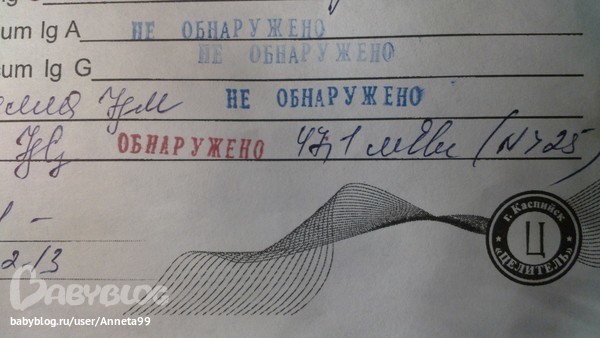 um Ig A НЕ ОБНАРУЖЕНО
cum Ig G НЕ ОБНАРУЖЕНО
IgM НЕ ОБНАРУЖЕНО
IgG ОБНАРУЖЕНО 47,1 мЕ/мл (N < 25)
г. Каспийск
Ц
«ЦЕЛИТЕЛЬ»
BABYBLOG
babyblog.ru/user/Anneta99